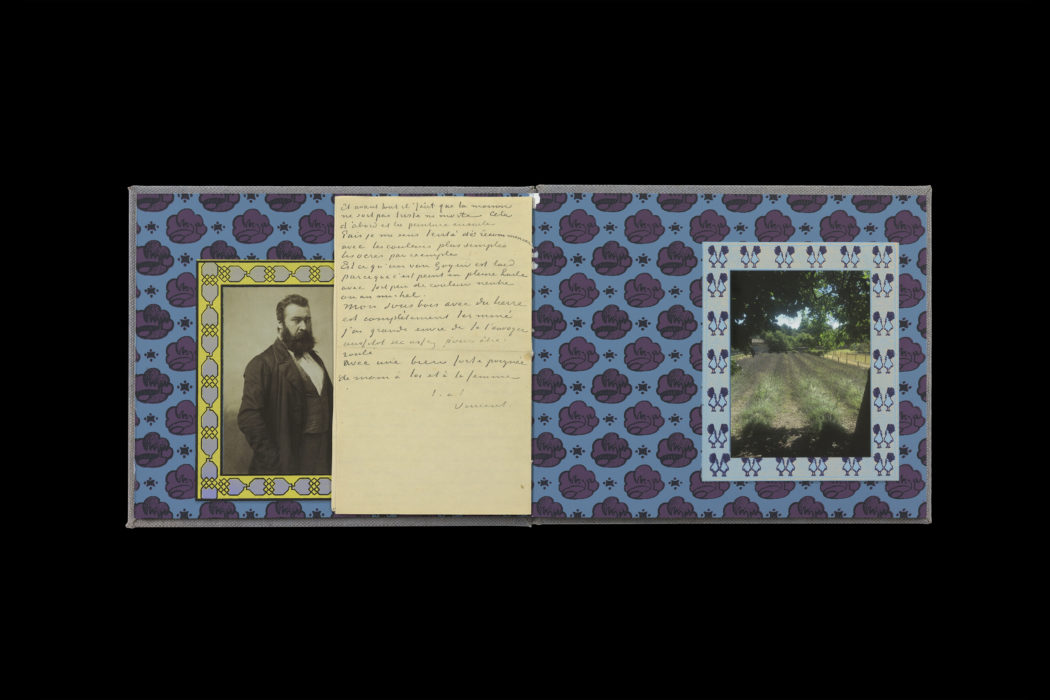 Et avant tout il faut que la maison
ne soit pas triste ni morte Cela
d'abord et la peinture ensuite
Puis je me sens tenté de recommencer
avec les couleurs plus simples
les ocres par exemple
Est ce qu'un van Goyen est laid
parceque c'est peint en pleine huile
avec fort peu de couleur neutre
ou un michel.
Mon sous bois avec du lierre
est complètement terminé
j'ai grande envie de te l'envoyer
aussitot sec assez pour être
roulé
avec une bien forte poignée
de main à toi et à ta femme
t. a t
Vincent